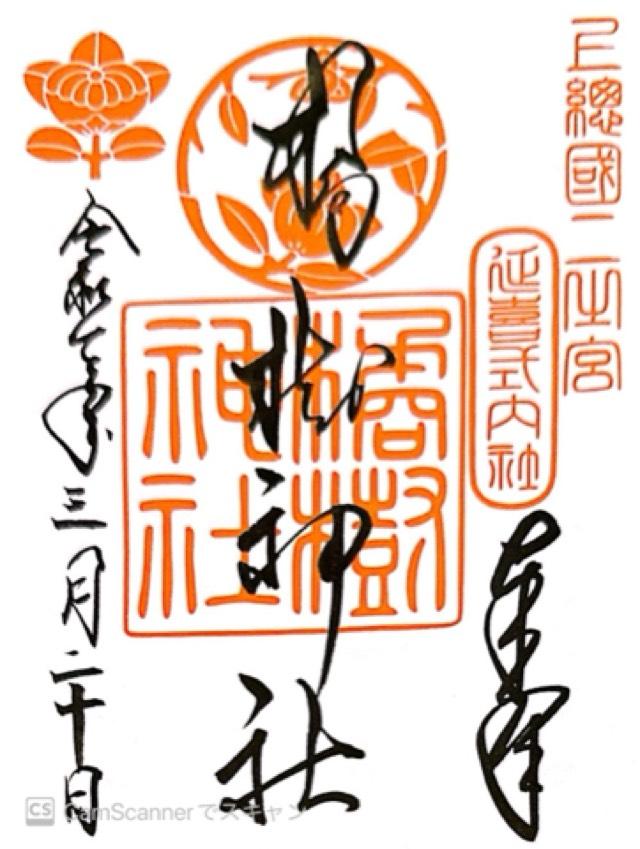 上總國二之宮
延喜式内社
奉拝
橘樹神社
橘樹神社
令和 年三月二十日
CS CamScannerでスキャン